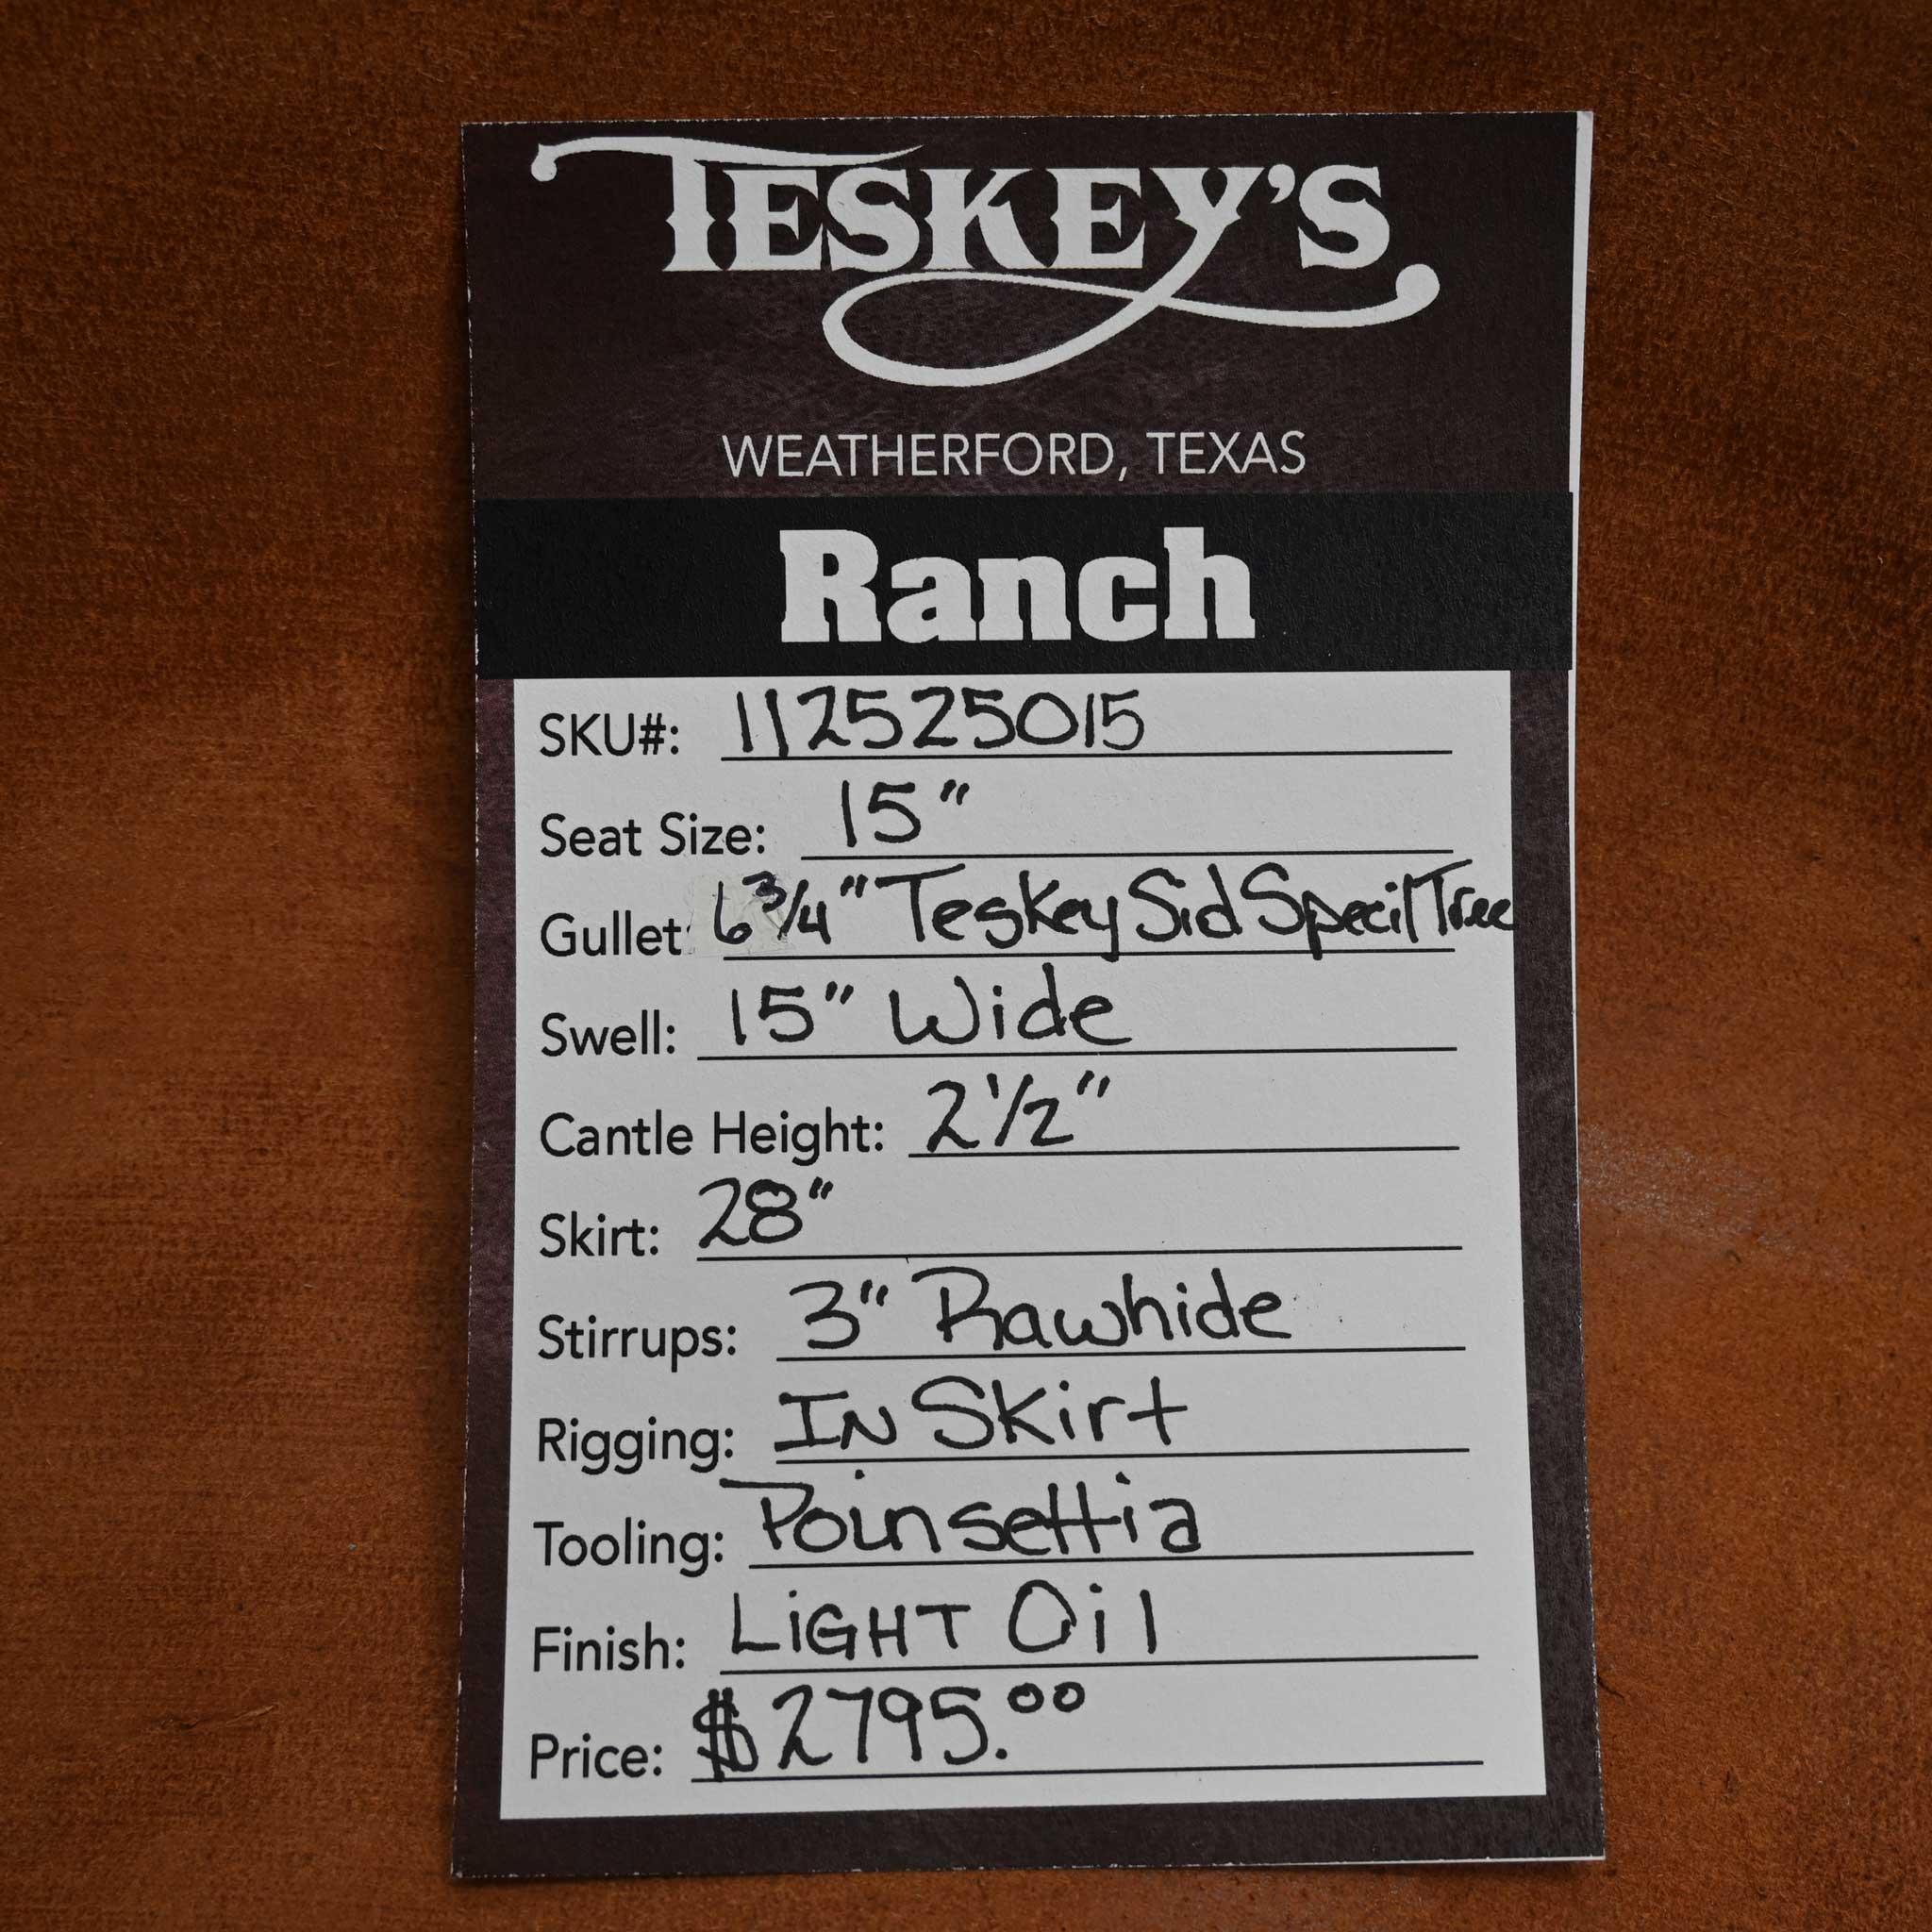 TESKEY'S
WEATHERFORD, TEXAS
Ranch
SKU#: 112525015
Seat Size: 15"
Gullet: 6 3/4" Teskey Sid Specil Tree
Swell: 15" Wide
Cantle Height: 2 1/2"
Skirt: 28"
Stirrups: 3" Rawhide
Rigging: IN Skirt
Tooling: Poinsettia
Finish: LiGHT Oil
Price: $2795.00